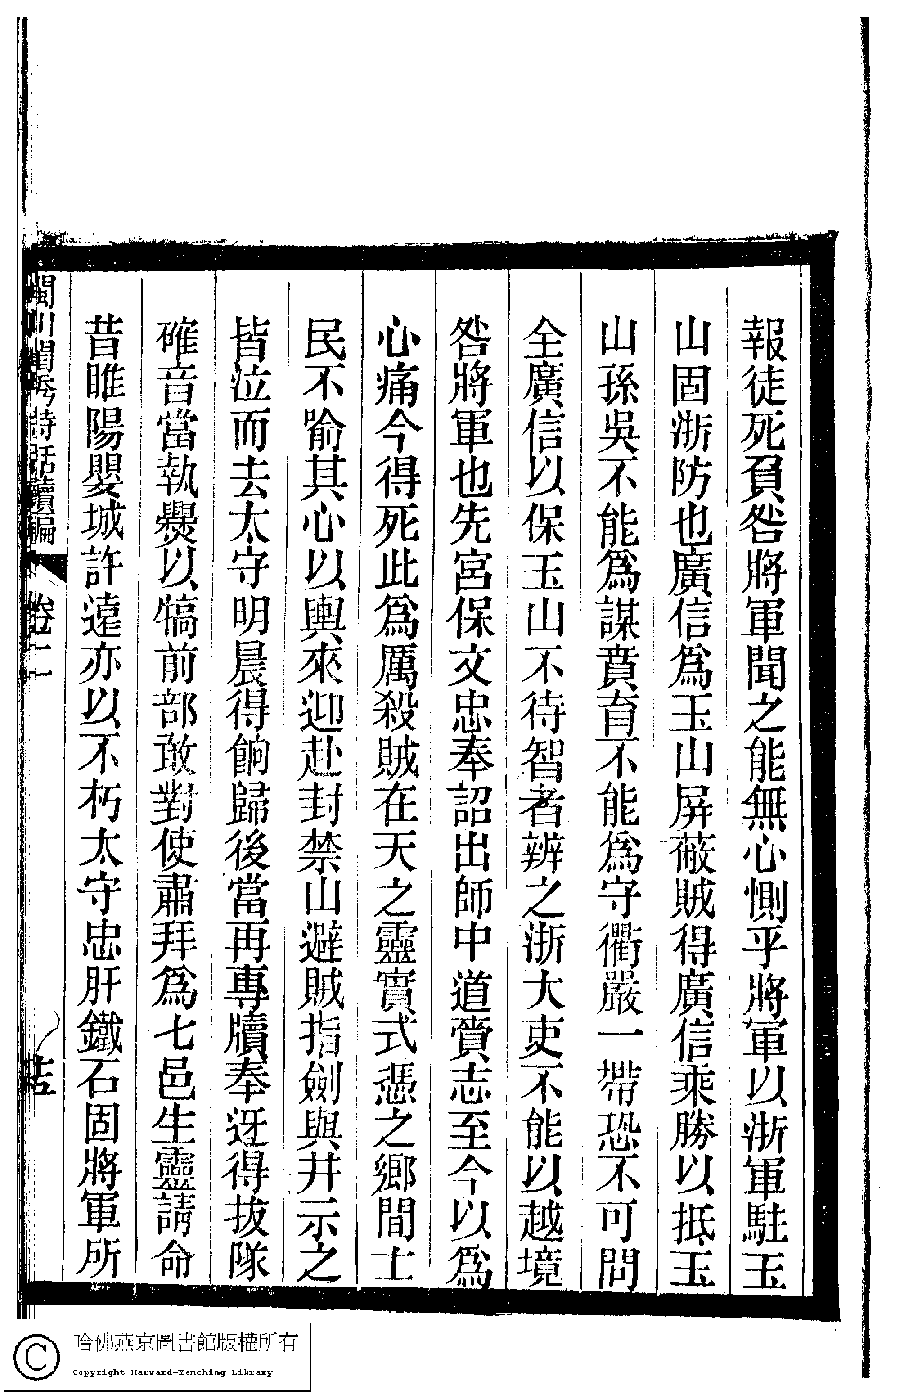 報徒死負咎將軍聞之能無心惻乎將軍以浙軍駐玉
山固浙防也廣信為玉山屏蔽賊得廣信乘勝以抵玉
山孫吳不能為謀賁育不能為守衢嚴一帶恐不可問
全廣信以保玉山不待智者辨之浙大吏不能以越境
咎將軍也先宮保文忠奉詔出師中道賫志至今以為
心痛今得死此為厲殺賊在天之靈實式憑之鄉間士
民不喻其心以輿來迎赴封禁山避賊指劍與井示之
皆泣而去太守明晨得餉歸後當再專牘奉迓得拔隊
確音當執爨以犒前部敢對使肅拜為七邑生靈請命
昔睢陽嬰城許遠亦以不朽太守忠肝鐵石固將軍所
閩川閨秀詩話續編
卷二
哈佛燕京圖書館版權所有
Copyright Harvard-Yenching Library